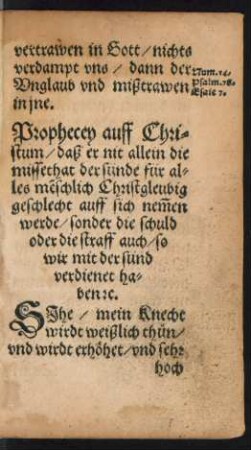 vertrawen in Gott / nichts
verdampt vns / dann der
Vnglaub vnd mißtrawen
in jne.
Num. 14.
Psalm. 78.
Esaie 7.
Prophecey auff Chri-
stum / daß er nit allein die
missethat der sünde für al-
les mēschlich Christgleubig
geschlecht auff sich nem̄en
werde / sonder die schuld
oder die straff auch / so
wir mit der sünd
verdienet ha-
ben ꝛc.
SIhe / mein Knecht
wirdt weißlich thün /
vnd wirdt erhöhet / vnd sehr
hoch